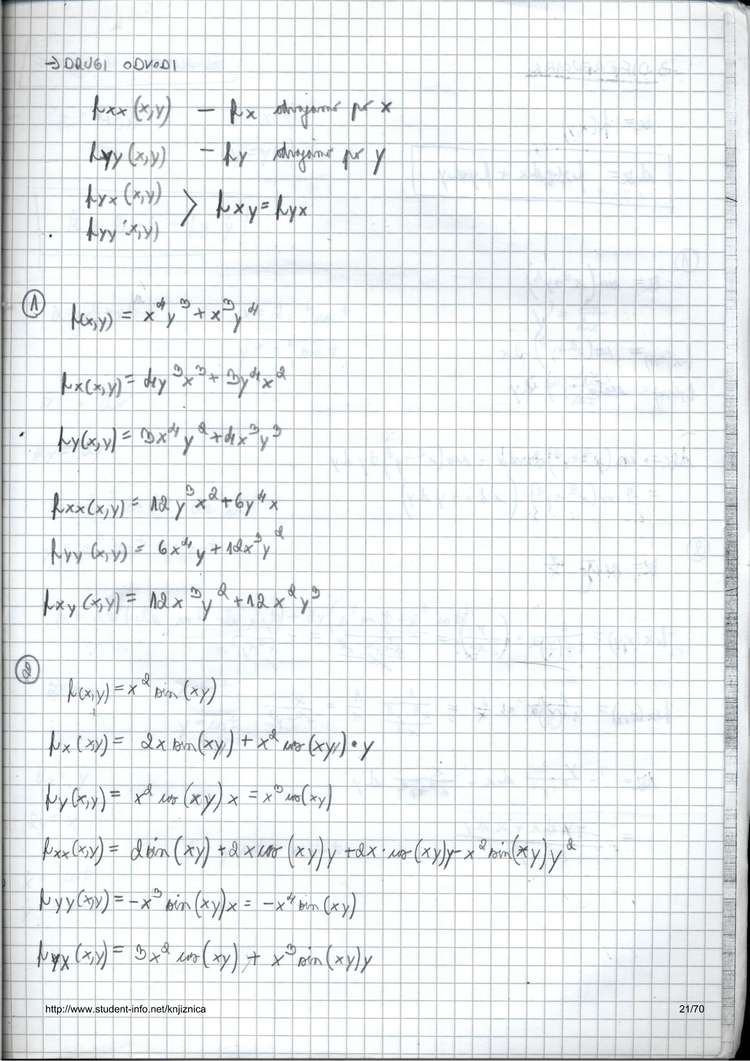 → DRUGI ODVODI
fxx(x,y) – fx odvajamo po x
fyy(x,y) – fy odvajamo po y
fyx(x,y)
fyy(x,y) > fxy = fyx
① f(x,y) = x⁴y³ + x³y⁴
fx(x,y) = 4y³x³ + 3y⁴x²
fy(x,y) = 3x⁴y² + 4x³y³
fxx(x,y) = 12y³x² + 6y⁴x
fyy(x,y) = 6x⁴y + 12x³y²
fxy(x,y) = 12x³y² + 12x²y³
② f(x,y) = x² sin(xy)
fx(x,y) = 2x sin(xy) + x² cos(xy)·y
fy(x,y) = x² cos(xy) x = x³ cos(xy)
fxx(x,y) = 2sin(xy) + 2x cos(xy)y + 2x·cos(xy)y – x² sin(xy)y²
fyy(x,y) = –x³ sin(xy)x = –x⁴ sin(xy)
fyx(x,y) = 3x² cos(xy) + x³ sin(xy)y
http://www.student-info.net/knjiznica 21/70